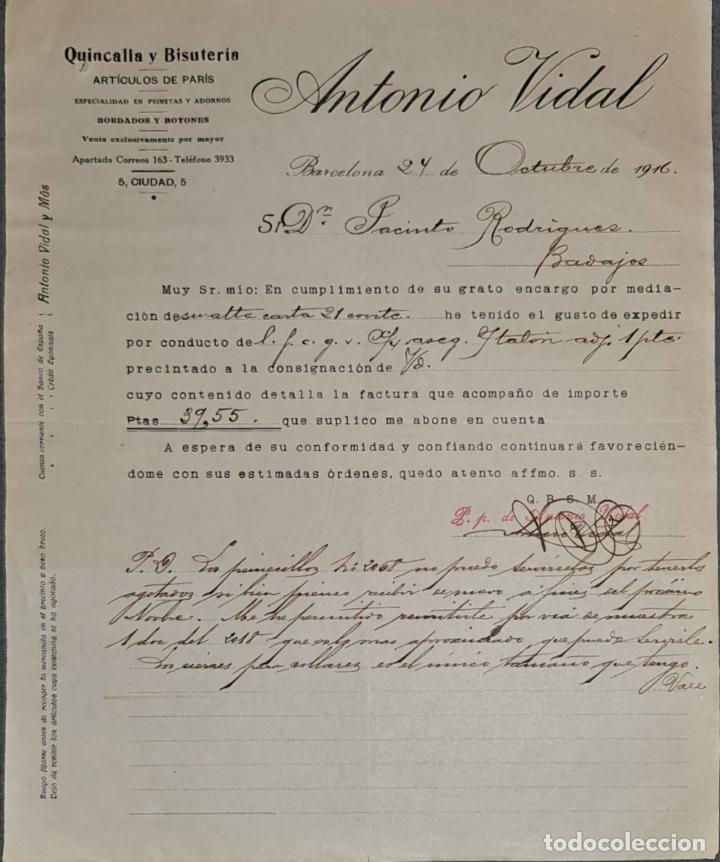 Quincalla y Bisutería
ARTÍCULOS DE PARÍS
ESPECIALIDAD EN PEINETAS Y ADORNOS
BORDADOS Y BOTONES
Venta exclusivamente por mayor
Apartado Correos 163 - Teléfono 3933
5, CIUDAD, 5
Antonio Vidal
Barcelona 24 de Octubre de 1916.
Sr. Dn Jacinto Rodrigues.
Badajos
Muy Sr. mío: En cumplimiento de su grato encargo por media-
ción de su atta carta 21 corrte. he tenido el gusto de expedir
por conducto de l. f. c. g. v. aseg. talón adj. 1 pte.
precintado a la consignación de V/d.
cuyo contenido detalla la factura que acompaño de importe
Ptas 39,55. que suplico me abone en cuenta
A espera de su conformidad y confiando continuará favorecién-
dome con sus estimadas órdenes, quedo atento affmo. s. s.
Q. B. S. M.
P. p. de Antonio Vidal
P.D. Los peinecillos No 2060 no puedo servírselos por tenerlos
agotados si bien pienso recibir de nuevo a fines del próximo
Novbre. Me he permitido remitirle por vía de muestra
1 doc del 2018 que es lo más aproximado, que puede servirle.
Los cierres para collares es el único tamaño que tengo.
Vale
Cuenta corriente con el Banco de España : Antonio Vidal y Más
Crédit Lyonnais
Ruego fijarse antes de recoger la mercancía en el precinto y peso bruto.
Dejo de remitir los artículos cuya existencia se ha agotado.
todocoleccion